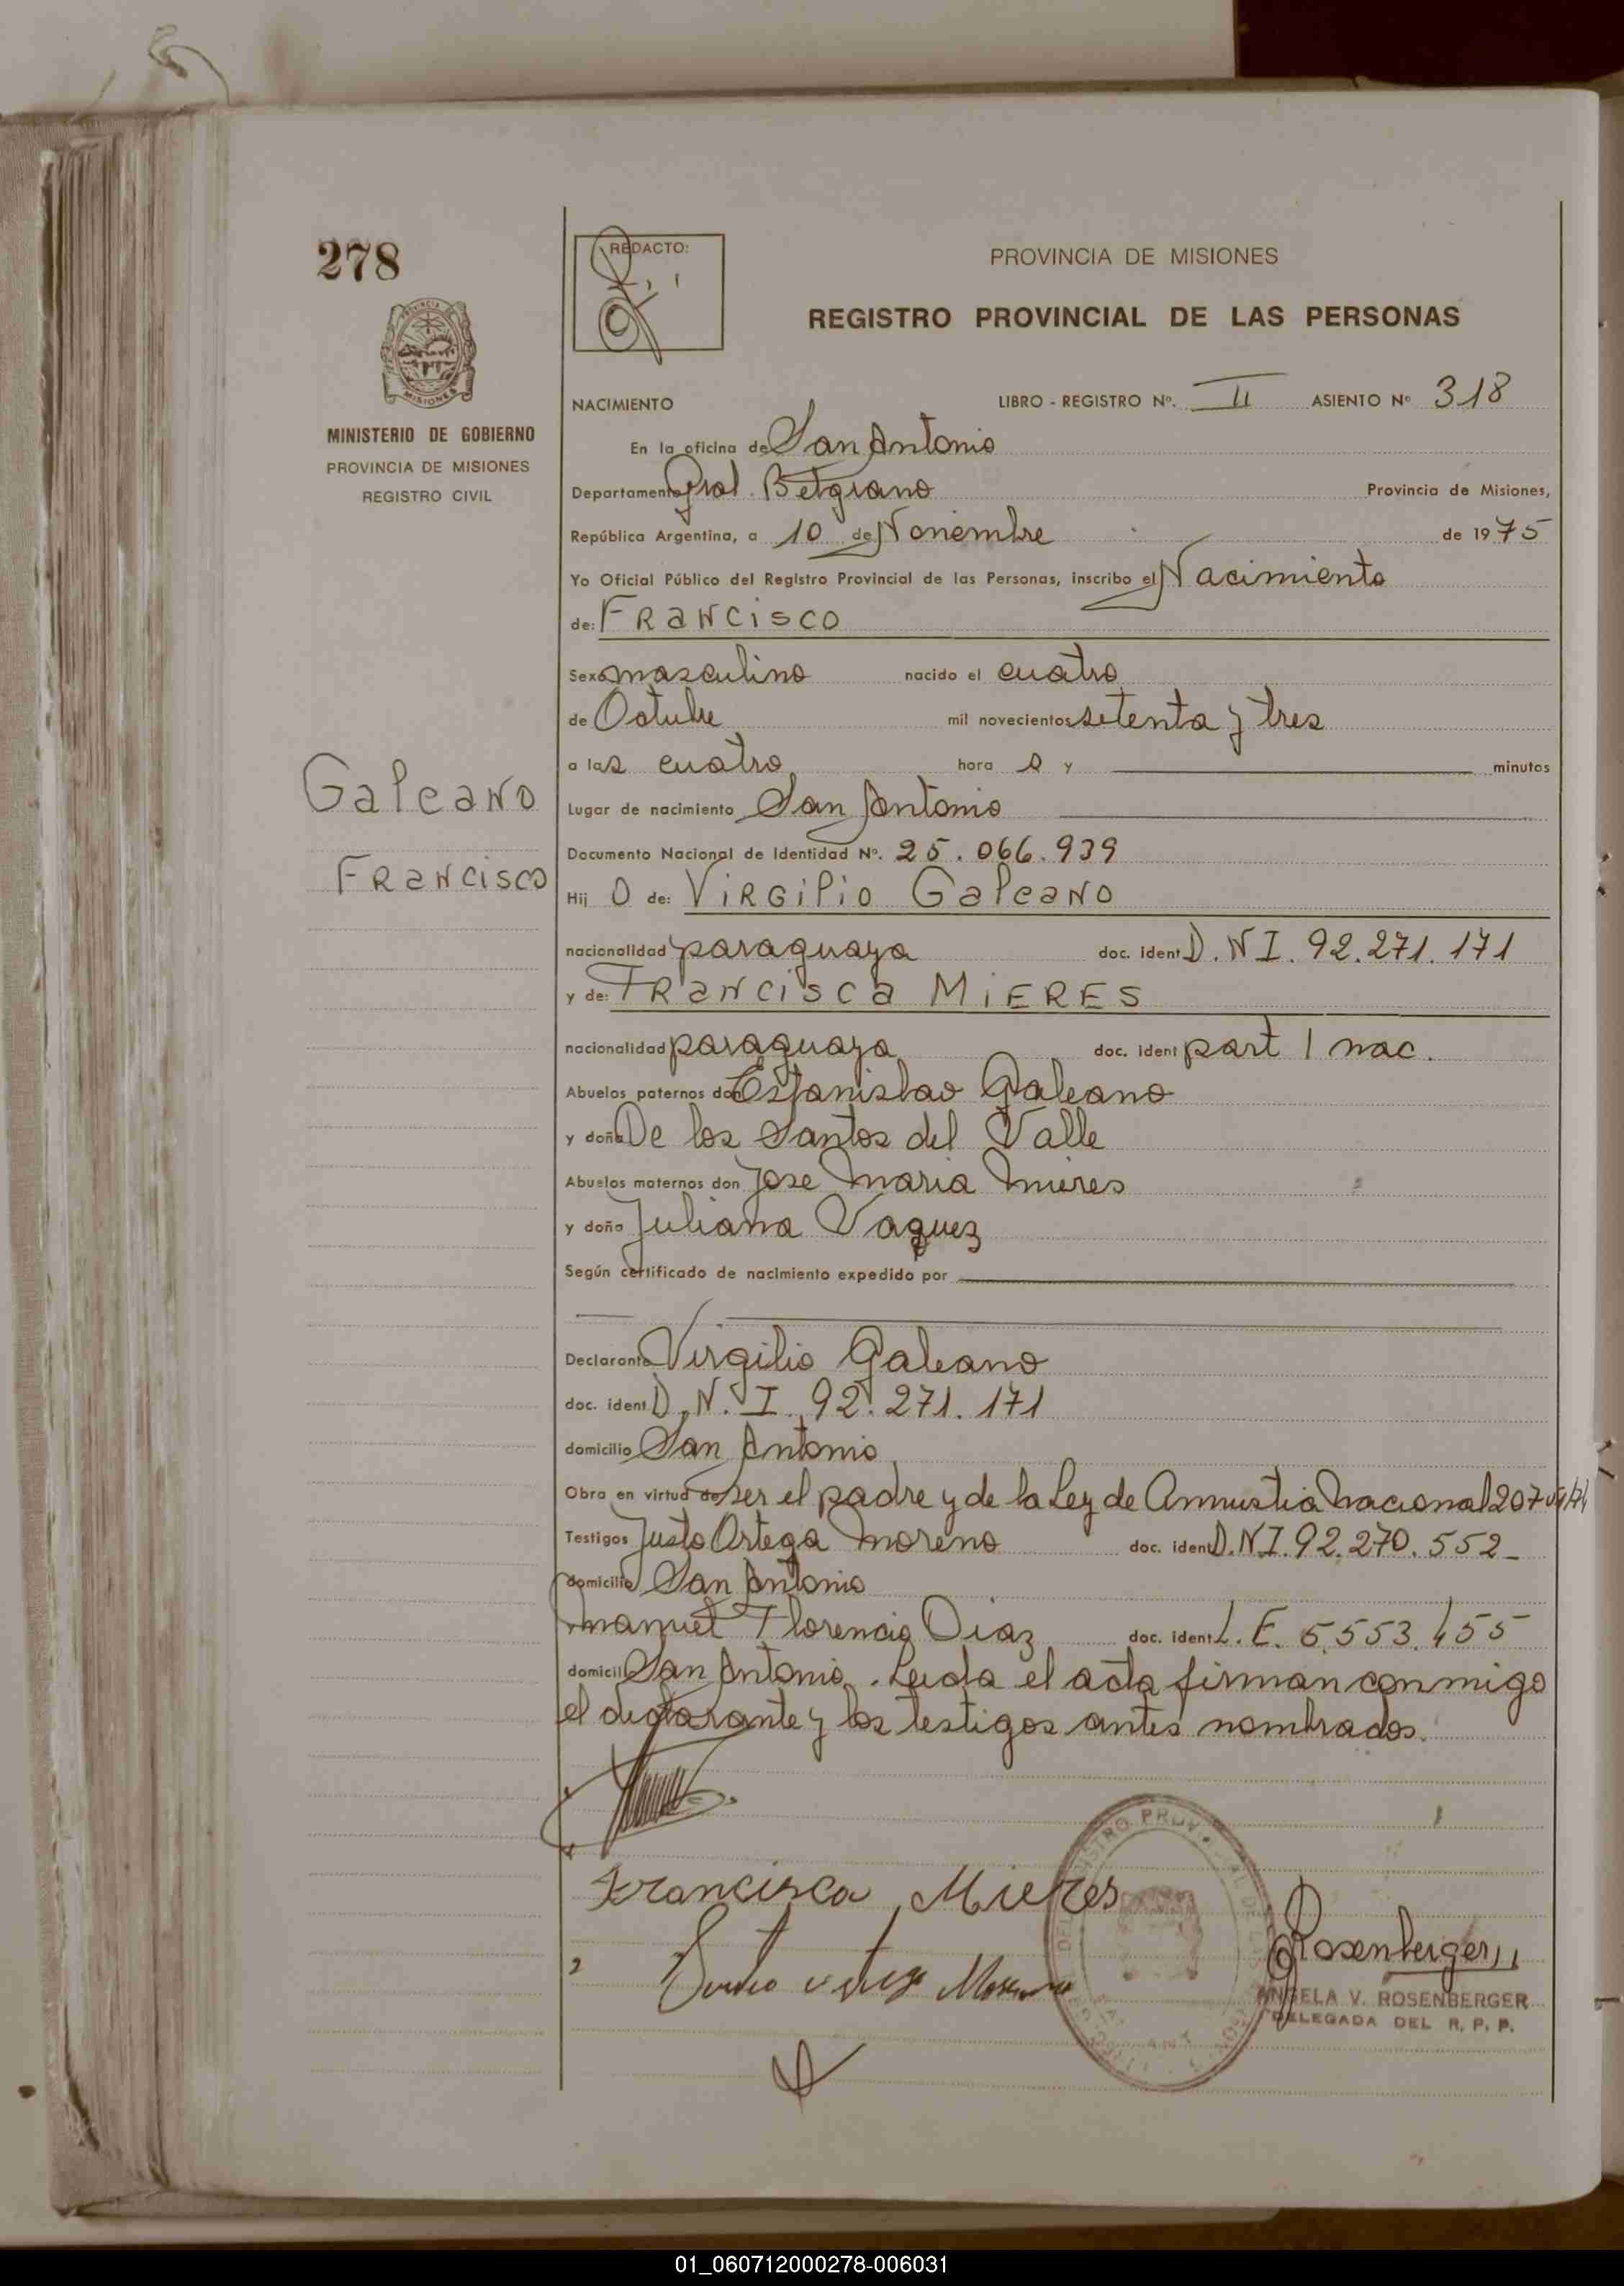 278
REDACTO:
PROVINCIA DE MISIONES
REGISTRO PROVINCIAL DE LAS PERSONAS
MINISTERIO DE GOBIERNO
PROVINCIA DE MISIONES
REGISTRO CIVIL
NACIMIENTO LIBRO - REGISTRO Nº. II ASIENTO Nº 318
En la oficina de San Antonio
Departamento Gral. Belgrano Provincia de Misiones,
República Argentina, a 10 de Noviembre de 1975
Yo Oficial Público del Registro Provincial de las Personas, inscribo el Nacimiento
de: FRANCISCO
Sexo masculino nacido el cuatro
de Octubre mil novecientos setenta y tres
a las cuatro hora s y minutos
Galeano
Lugar de nacimiento San Antonio
Documento Nacional de Identidad Nº. 25.066.939
Francisco
Hij o de: Virgilio Galeano
nacionalidad paraguaya doc. ident D.N I. 92.271.171
y de: Francisca MIERES
nacionalidad paraguaya doc. ident part / nac.
Abuelos paternos don Estanislao Galeano
y doña De los Santos del Valle
Abuelos maternos don Jose Maria Mieres
y doña Juliana Vaquez
Según certificado de nacimiento expedido por
Declarante Virgilio Galeano
doc. ident. D.N.I. 92.271.171
domicilio San Antonio
Obra en virtud de ser el padre y de la Ley de Amnistia Nacional 207
Testigos Justo Ortega Moreno doc. ident D.N I. 92.270.552
domicilio San Antonio
Manuel Florencio Diaz doc. ident L.E. 5.553.455
domicilio San Antonio. Leida el acta firman conmigo
el declarante y los testigos antes nombrados.
Francisca Mieres
Justo Ortega Moreno
Rosenberger
ANGELA V. ROSENBERGER
DELEGADA DEL R. P. P.
01_060712000278-006031